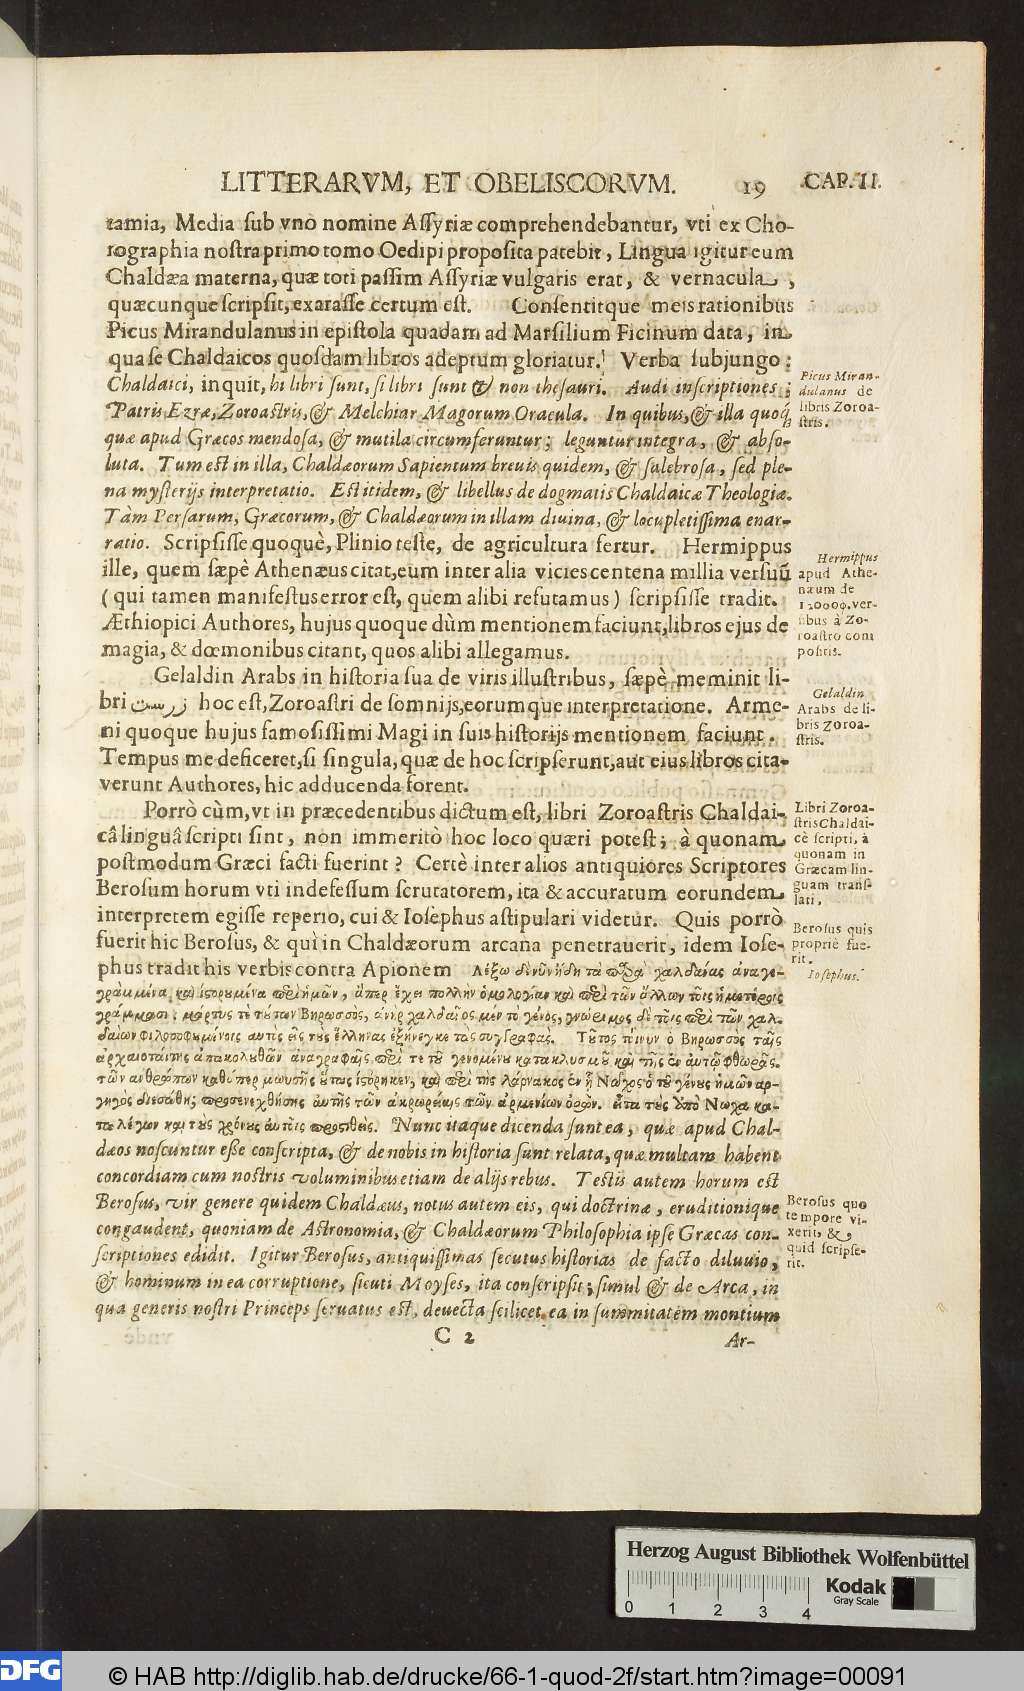 LITTERARVM, ET OBELISCORVM. 19 CAP. II.
tamia, Media sub vno nomine Assyriæ comprehendebantur, vti ex Cho-
rographia nostra primo tomo Oedipi proposita patebit, Lingua igitur eum
Chaldæa materna, quæ toti passim Assyriæ vulgaris erat, & vernacula,
quæcunque scripsit, exarasse certum est. Consentitque meis rationibus
Picus Mirandulanus in epistola quadam ad Marsilium Ficinum data, in
qua se Chaldaicos quosdam libros adeptum gloriatur. Verba subjungo:
Chaldaici, inquit, hi libri sunt, si libri sunt & non thesauri. Audi inscriptiones;
Patris Ezræ, Zoroastris, & Melchiar Magorum Oracula. In quibus, & illa quoq;
quæ apud Græcos mendosa, & mutila circumferuntur; leguntur integra, & abso-
luta. Tum est in illa, Chaldæorum Sapientum breuis quidem, & salebrosa, sed ple-
na mysterijs interpretatio. Est itidem, & libellus de dogmatis Chaldaicæ Theologiæ.
Tàm Persarum, Græcorum, & Chaldæorum in illam diuina, & locupletissima enar-
ratio. Scripsisse quoquè, Plinio teste, de agricultura fertur. Hermippus
ille, quem sæpè Athenæus citat, eum inter alia vicies centena millia versuū
( qui tamen manifestus error est, quem alibi refutamus ) scripsisse tradit.
Æthiopici Authores, hujus quoque dùm mentionem faciunt, libros ejus de
magia, & dœmonibus citant, quos alibi allegamus.
Gelaldin Arabs in historia sua de viris illustribus, sæpè meminit li-
bri زرست hoc est, Zoroastri de somnijs, eorumque interpretatione. Arme-
ni quoque hujus famosissimi Magi in suis historijs mentionem faciunt.
Tempus me deficeret, si singula, quæ de hoc scripserunt, aut eius libros cita-
verunt Authores, hic adducenda forent.
Porrò cùm, vt in præcedentibus dictum est, libri Zoroastris Chaldai-
câ linguâ scripti sint, non immeritò hoc loco quæri potest; à quonam
postmodum Græci facti fuerint? Certè inter alios antiquiores Scriptores
Berosum horum vti indefessum scrutatorem, ita & accuratum eorundem
interpretem egisse reperio, cui & Iosephus astipulari videtur. Quis porrò
fuerit hic Berosus, & quì in Chaldæorum arcana penetrauerit, idem Iose-
phus tradit his verbis contra Apionem λέξω δὲ νῦν ἤδη τὰ παρὰ χαλδαίοις ἀναγε-
γραμμένα καὶ ἱστορούμενα περὶ ἡμῶν, ἅπερ ἔχει πολλὴν ὁμολογίαν καὶ περὶ τῶν ἄλλων τοῖς ἡμετέροις
γράμμασι: μάρτυς τὲ τούτων Βηρωσσος, ἀνὴρ χαλδαῖος μέν τὸ γένος, γνώριμος δὲ τοῖς περὶ τῶν χαλ-
δαίων φιλοσοφουμένοις αὐτὸς εἰς τοὺς ἕλληνας ἐξήνεγκε τὰς συγγραφας. Τοῦτος τοίνυν ὁ Βηρωσσος ταῖς
ἀρχαιοτάταις ἀπακολουθῶν ἀναγραφαῖς περὶ τε τοῦ γενομένου κατακλυσμοῦ καὶ τῆς ἐν αὐτῷ φθορᾶς.
τῶν ἀνθρώπων καθάπερ μωυσῆς οὕτως ἱστόρηκεν, καὶ περὶ τῆς λάρνακος ἐν ᾗ Νωχος ὁ τοῦ γένους ἡμῶν ἀρ-
χηγὸς διεσώθη προσενεχθείσης αὐτῆς τῶν ἀκρωρείαις τῶν ἀρμενίων ὀρῶν. εἶτα τοὺς ὑπὸ Νωχα κα-
τα λέγων καὶ τοὺς χρόνους αὐτοῖς προστιθείς. Nunc itaque dicenda sunt ea, quæ apud Chal-
dæos noscuntur esse conscripta, & de nobis in historia sunt relata, quæ multam habent
concordiam cum nostris voluminibus etiam de alijs rebus. Testis autem horum est
Berosus, vir genere quidem Chaldæus, notus autem eis, qui doctrinæ, eruditionique
congaudent, quoniam de Astronomia, & Chaldæorum Philosophia ipse Græcas con-
scriptiones edidit. Igitur Berosus, antiquissimas secutus historias de facto diluuio,
& hominum in ea corruptione, sicuti Moyses, ita conscripsit; simul & de Arca, in
qua generis nostri Princeps seruatus est, deuecta scilicet ea in summitatem montium
C 2 Ar-
Picus Miran-
dulanus de
libris Zoroa-
stris.
Hermippus
apud Athe-
næum de
120000. ver-
sibus à Zo-
roastro com
positis.
Gelaldin
Arabs de li-
bris Zoroa-
stris.
Libri Zoroa-
stris Chaldai-
cè scripti, à
quonam in
Græcam lin-
guam trans-
lati.
Berosus quis
propriè fue-
rit.
Iosephus.
Berosus quo
tempore vi-
xerit, &
quid scripse-
rit.
Herzog August Bibliothek Wolfenbüttel
Kodak
Gray Scale
0 1 2 3 4
DFG
© HAB http://diglib.hab.de/drucke/66-1-quod-2f/start.htm?image=00091